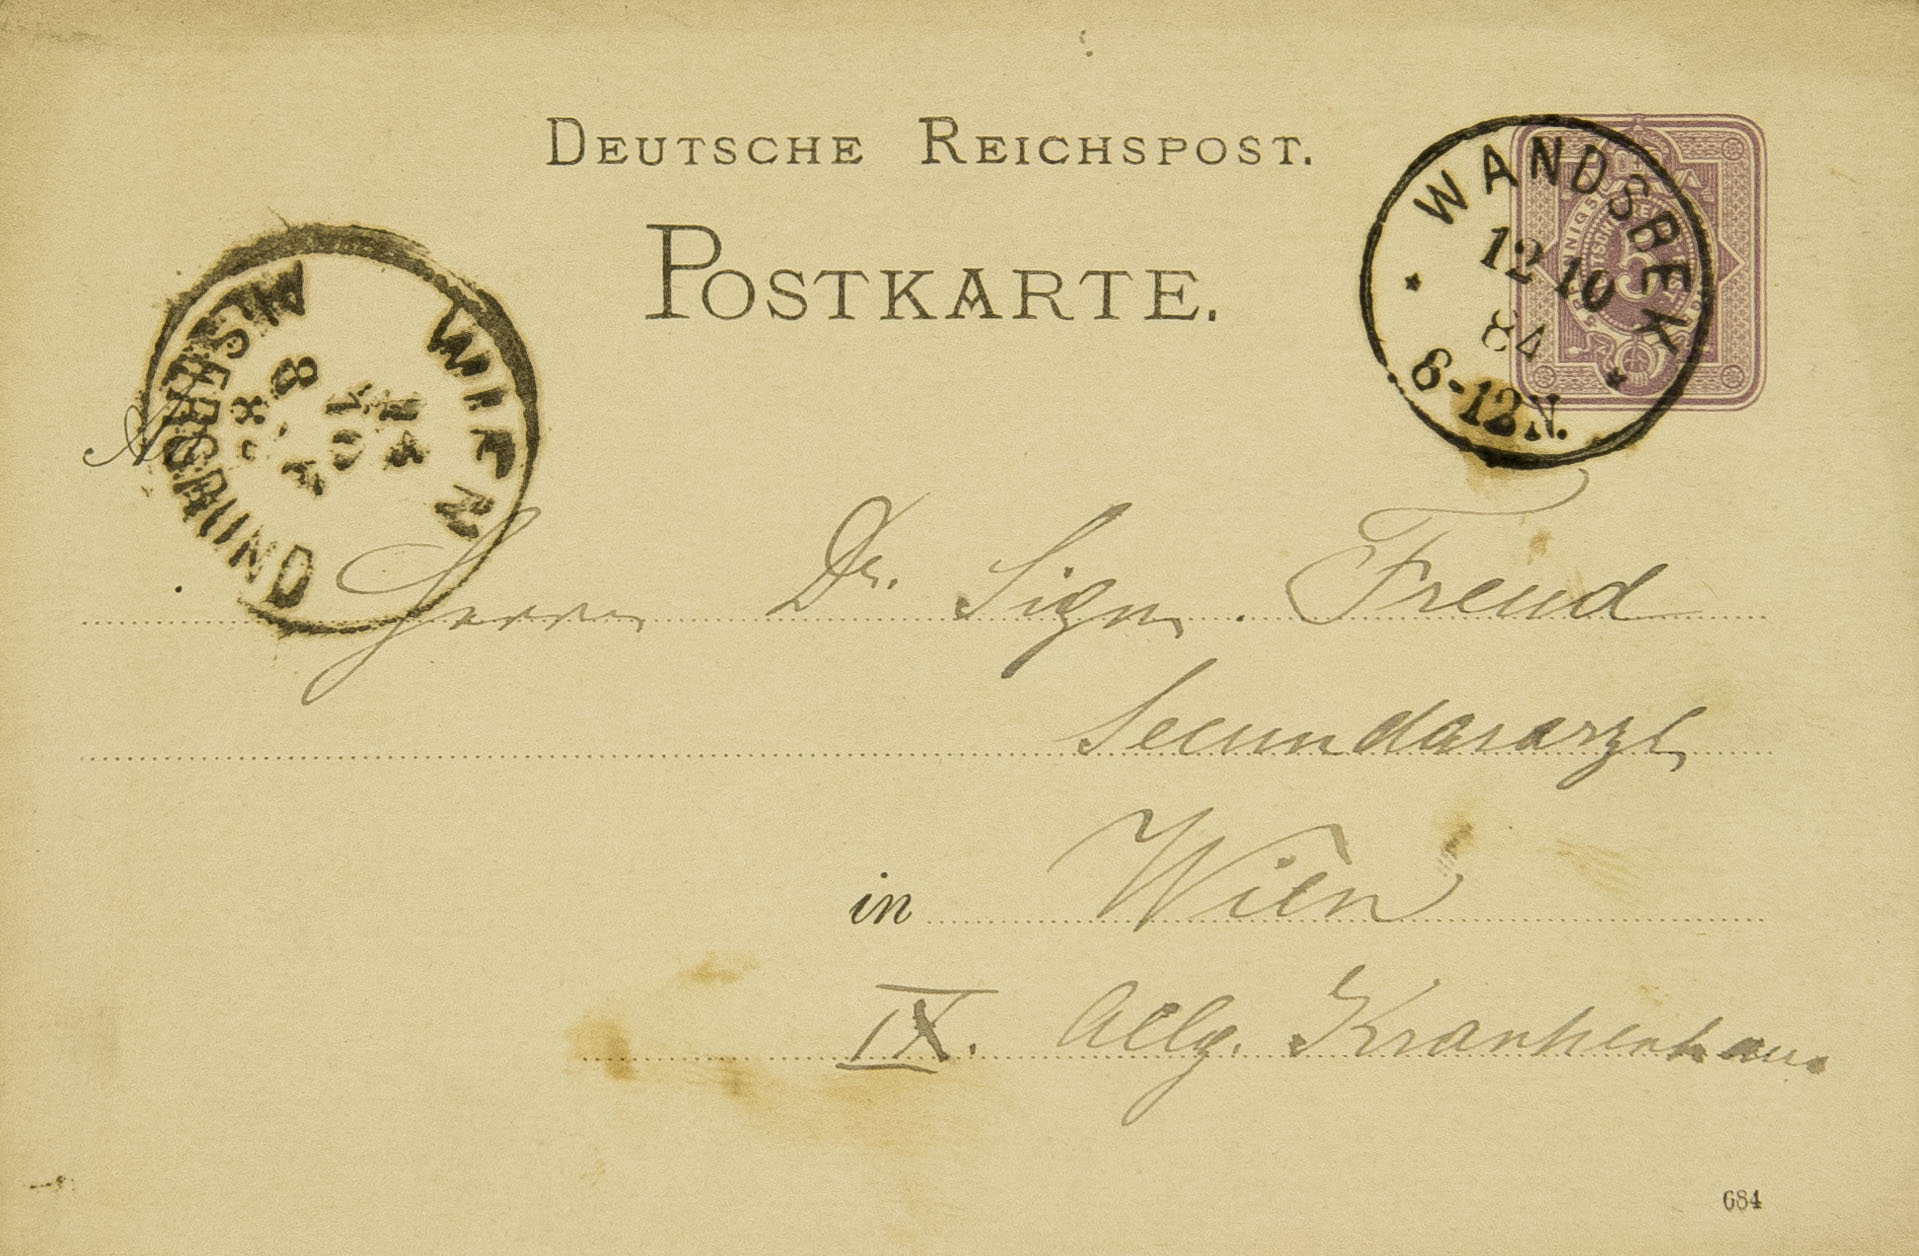 DEUTSCHE REICHSPOST.
POSTKARTE.
WANDSBEK
12 10
84
8-12N.
WIEN
ALSERGRUND
An
Herrn Dr. Sigm. Freud
Secundararzt
in Wien
IX. Allg. Krankenhaus
684